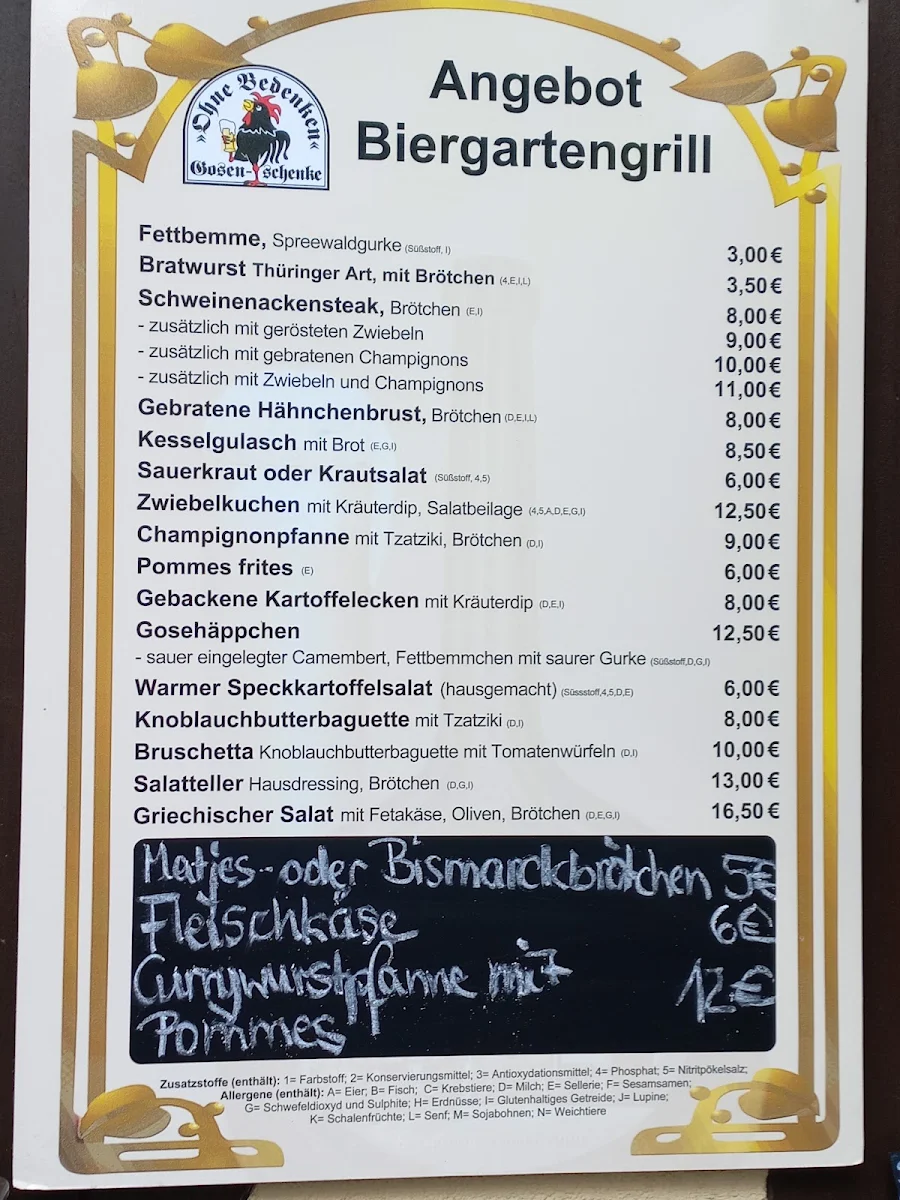 »Ohne Bedenken«
Gosen-schenke
Angebot
Biergartengrill
Fettbemme, Spreewaldgurke (Süßstoff, I) 3,00 €
Bratwurst Thüringer Art, mit Brötchen (4,E,I,L) 3,50 €
Schweinenackensteak, Brötchen (E,I) 8,00 €
- zusätzlich mit gerösteten Zwiebeln 9,00 €
- zusätzlich mit gebratenen Champignons 10,00 €
- zusätzlich mit Zwiebeln und Champignons 11,00 €
Gebratene Hähnchenbrust, Brötchen (D,E,I,L) 8,00 €
Kesselgulasch mit Brot (E,G,I) 8,50 €
Sauerkraut oder Krautsalat (Süßstoff, 4,5) 6,00 €
Zwiebelkuchen mit Kräuterdip, Salatbeilage (4,5,A,D,E,G,I) 12,50 €
Champignonpfanne mit Tzatziki, Brötchen (D,I) 9,00 €
Pommes frites (E) 6,00 €
Gebackene Kartoffelecken mit Kräuterdip (D,E,I) 8,00 €
Gosehäppchen 12,50 €
- sauer eingelegter Camembert, Fettbemmchen mit saurer Gurke (Süßstoff,D,G,I)
Warmer Speckkartoffelsalat (hausgemacht) (Süssstoff,4,5,D,E) 6,00 €
Knoblauchbutterbaguette mit Tzatziki (D,I) 8,00 €
Bruschetta Knoblauchbutterbaguette mit Tomatenwürfeln (D,I) 10,00 €
Salatteller Hausdressing, Brötchen (D,G,I) 13,00 €
Griechischer Salat mit Fetakäse, Oliven, Brötchen (D,E,G,I) 16,50 €
Matjes- oder Bismarckbrötchen 5€
Fleischkäse 6€
Currywurstpfanne mit 12€
Pommes
Zusatzstoffe (enthält): 1= Farbstoff; 2= Konservierungsmittel; 3= Antioxydationsmittel; 4= Phosphat; 5= Nitritpökelsalz;
Allergene (enthält): A= Eier; B= Fisch; C= Krebstiere; D= Milch; E= Sellerie; F= Sesamsamen;
G= Schwefeldioxyd und Sulphite; H= Erdnüsse; I= Glutenhaltiges Getreide; J= Lupine;
K= Schalenfrüchte; L= Senf; M= Sojabohnen; N= Weichtiere